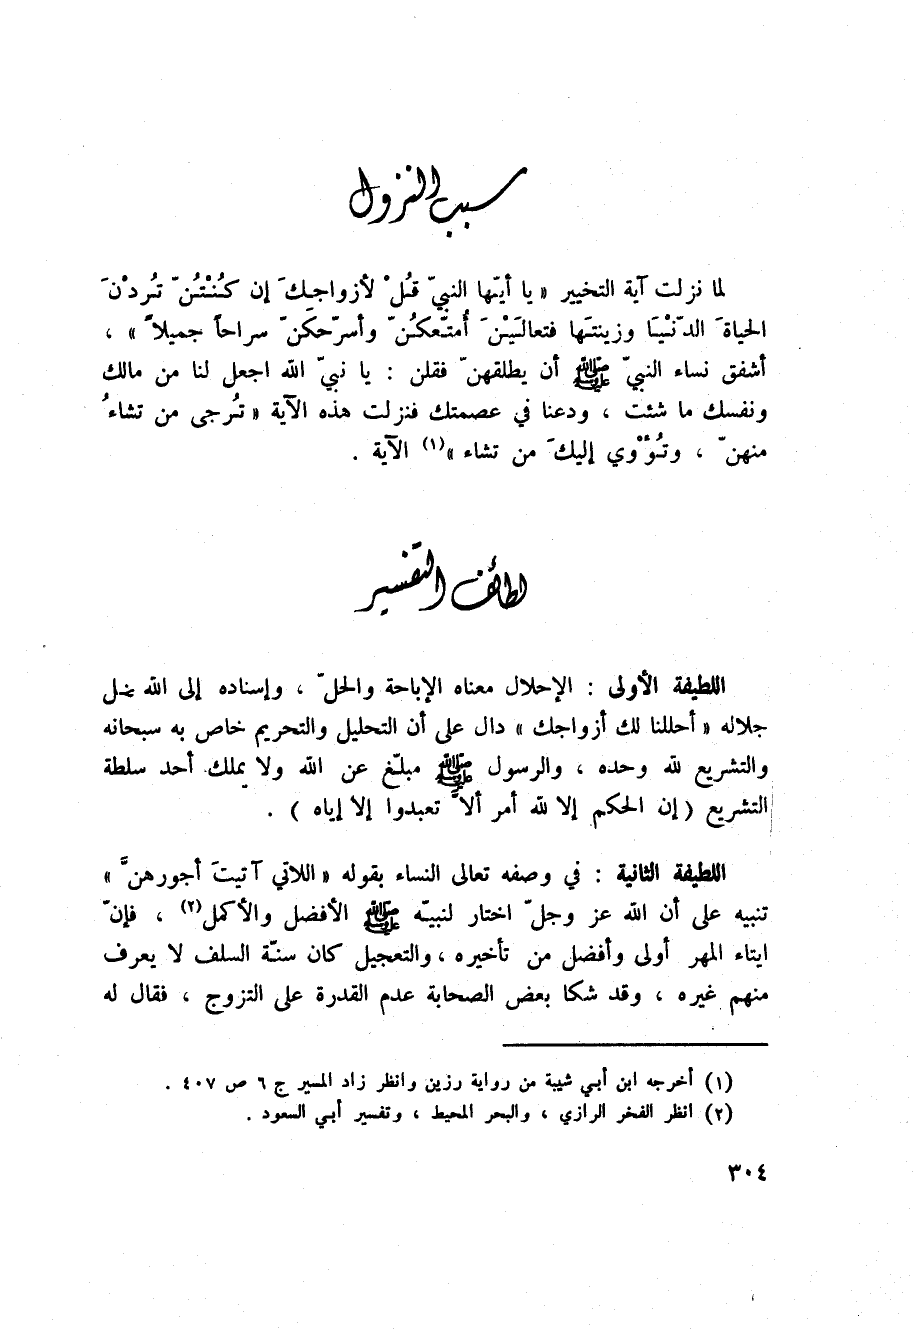 سبب النزول
لما نزلت آية التخيير « يا أيّها النبيّ قُلْ لأزواجِكَ إن كُنْتُنّ تُرِدْنَ
الحياةَ الدّنْيَا وزينتَها فتعالَيْنَ أُمتّعكُنّ وأسرّحكَن ّ سراحاً جميلاً » ،
أشفق نساء النبيّ ﷺ أن يطلقهنّ فقلن : يا نبيّ الله اجعل لنا من مالك
ونفسك ما شئت ، ودعنا في عصمتك فنزلت هذه الآية « تُرجى من تشاءُ
منهنّ ، وتُؤْوي إليكَ من تشاء »(١) الآية .
لطائف التفسير
اللطيفة الأولى : الإحلال معناه الإباحة والحلّ ، وإسناده إلى الله جل
جلاله « أحللنا لك أزواجك » دال على أن التحليل والتحريم خاص به سبحانه
والتشريع لله وحده ، والرسول ﷺ مبلّغ عن الله ولا يملك أحد سلطة
التشريع ( إن الحكم إلا لله أمر ألاَّ تعبدوا إلا إياه ) .
اللطيفة الثانية : في وصفه تعالى النساء بقوله « اللاتي آتيتَ أجورهنَّ »
تنبيه على أن الله عز وجلّ اختار لنبيّه ﷺ الأفضل والأكمل(٢) ، فإنّ
ايتاء المهر أولى وأفضل من تأخيره ، والتعجيل كان سنّة السلف لا يعرف
منهم غيره ، وقد شكا بعض الصحابة عدم القدرة على التزوج ، فقال له
(١) أخرجه ابن أبي شيبة من رواية رزين وانظر زاد المسير ج ٦ ص ٤٠٧ .
(٢) انظر الفخر الرازي ، والبحر المحيط ، وتفسير أبي السعود .
٣٠٤